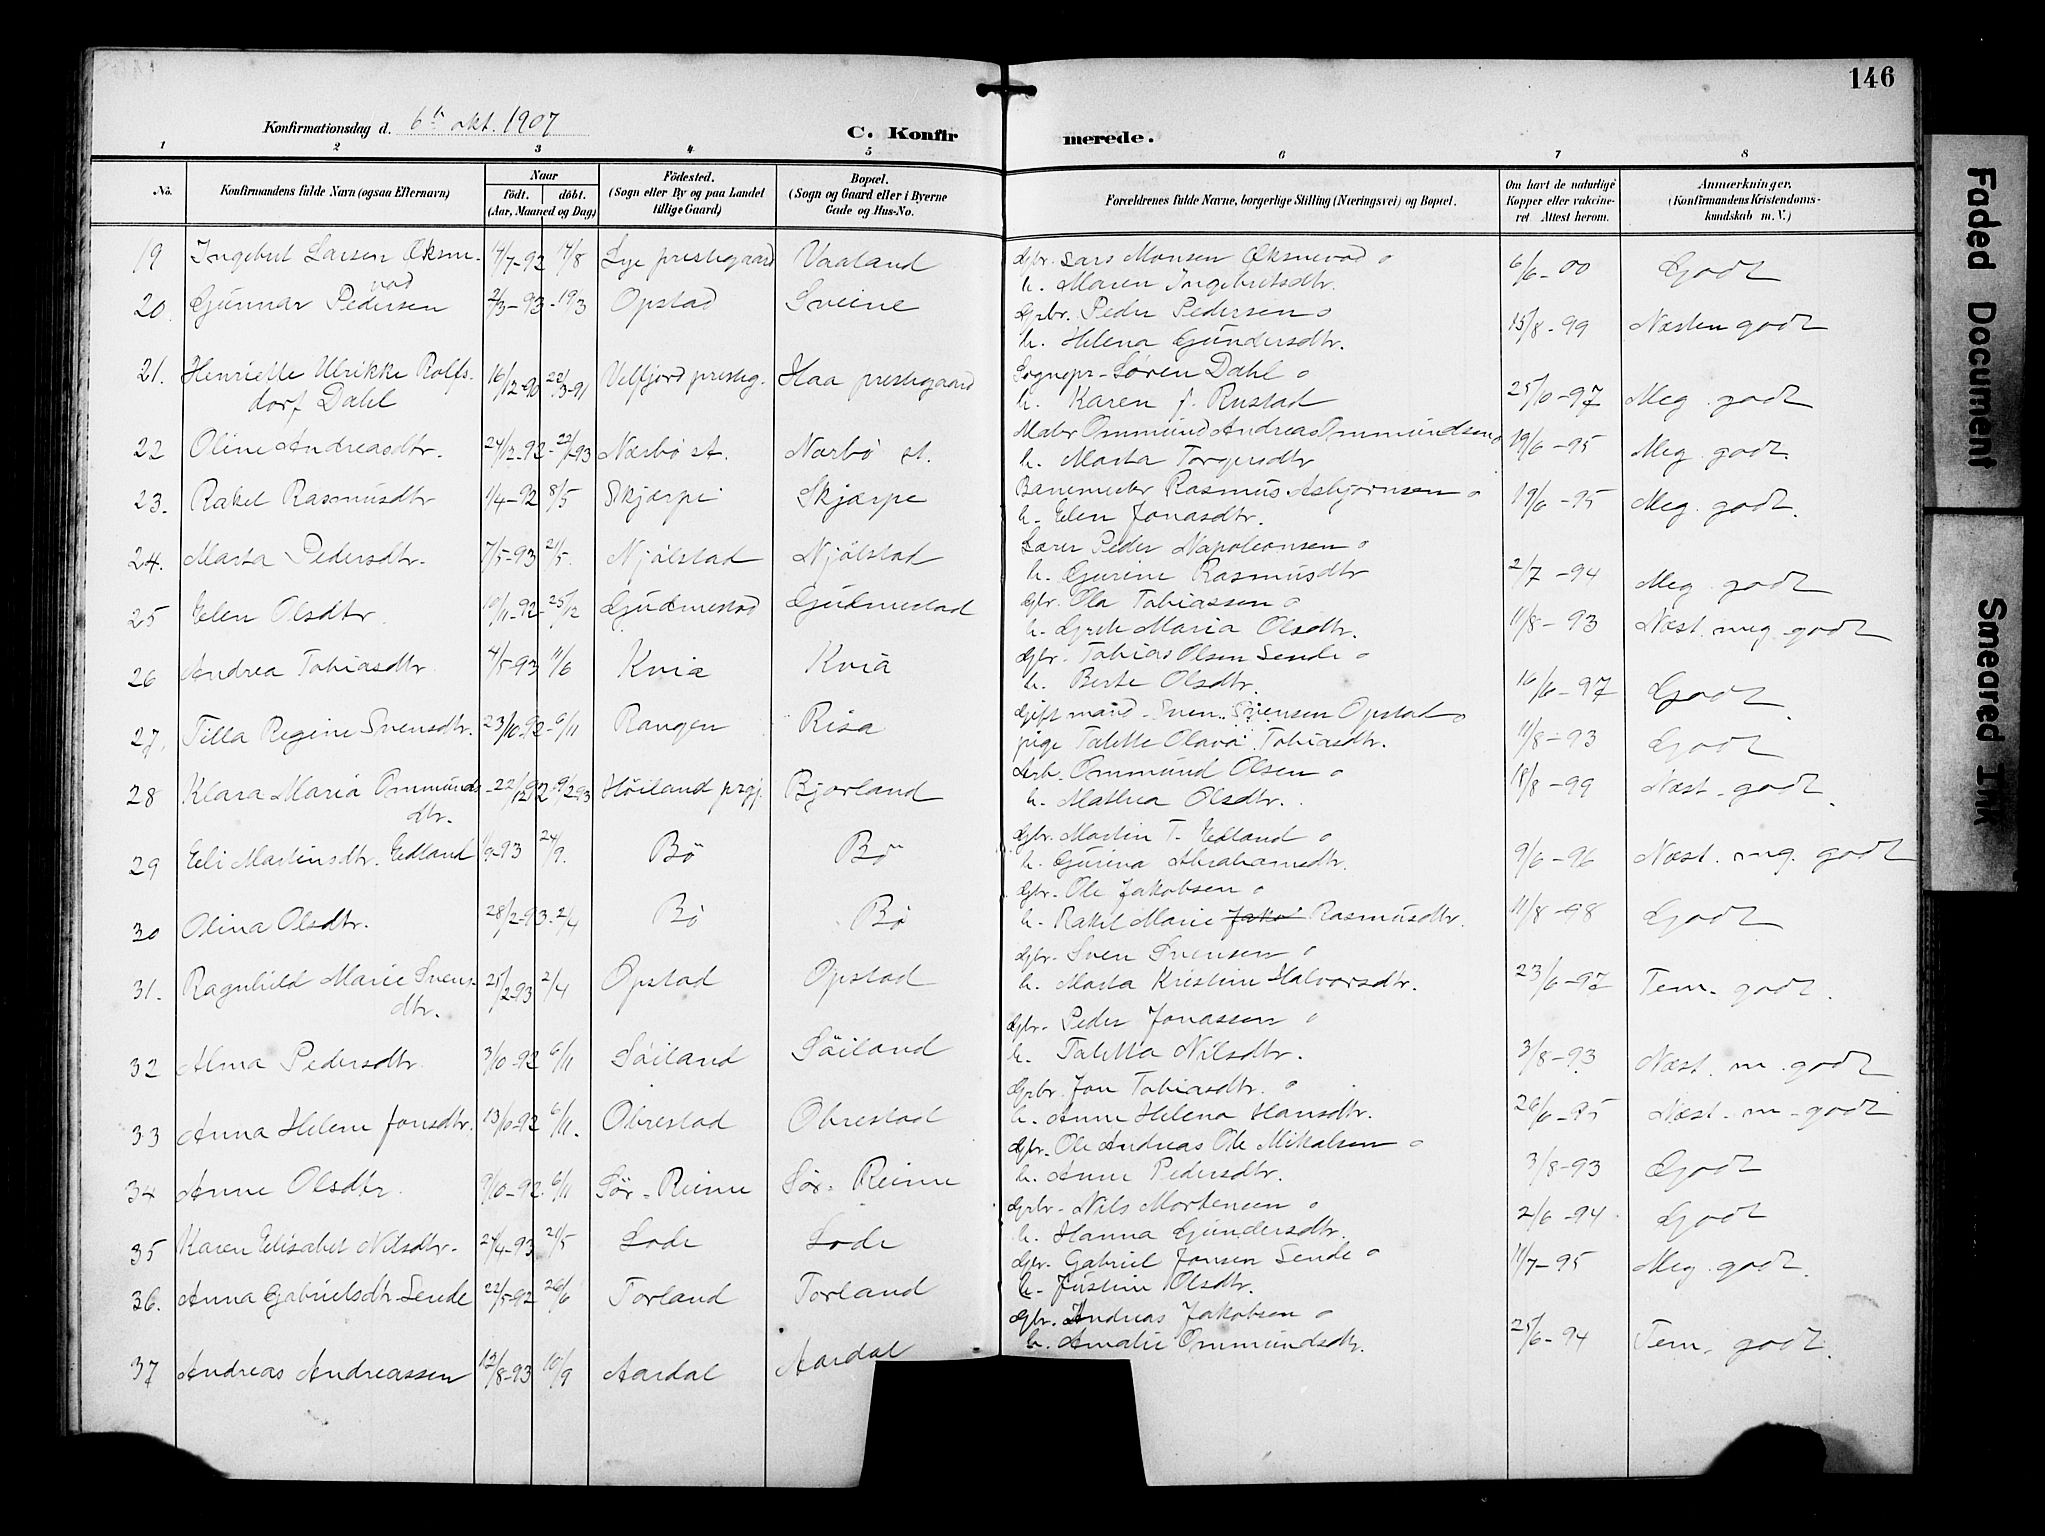 146
Konfirmationsdag d. 6te okt. 1907
C. Konfirmerede.
1 2 3 4 5 6 7 8
No.
Konfirmandens fulde Navn (ogsaa Efternavn)
Naar
födt. döbt.
(Aar, Maaned og Dag)
Födested.
(Sogn eller By og paa Landet
tillige Gaard)
Bopæl.
(Sogn og Gaard eller i Byerne
Gade og Hus-No.
Forældrenes fulde Navne, borgerlige Stilling (Næringsvei) og Bopæl.
Om havt de naturlige
Kopper eller vakcine-
ret Attest herom.
Anmærkninger.
(Konfirmandens Kristendoms-
kundskab m. V.)
19 Ingebret Larsen Øksne- 17/8 Lye prestegaard Vaaland Gbr. Lars Monsen Øksnevad 6/6-00 Godt
vad
h. Maren Ingebretsdtr.
20. Gunnar Pedersen 2/3-93 -19/3 Opstad Sveine Grbr. Peder Pedersen 15/8-99 Næsten godt
h. Helena Gundersdtr.
21. Henriette Ulrikke Rolfs- 16/12-90 22/3-91 Velfjord presteg. Haa prestegaard Sognepr. Søren Dahl 25/10-97 Meg. godt
dorf Dahl
h. Karen f. Rustad
22 Oline Andreasdtr. 24/12-92 -22/1-93 Nærbö st. Nærbö st. Ommund Andreas Ommundsen 19/6-95 Meg. godt.
h. Marta Torgersdtr
23. Rakel Rasmusdtr 1/4-92 8/5 Skjærpe Skjærpe Banemester Rasmus Asbjørnsen 19/6-95 Meg. godt.
h. Elen Jonasdtr.
24. Marta Pedersdtr. 7/5-93 21/5. Njölstad Njölstad Lærer Peder Napoleonsen 2/7-94 Meg. godt
h. Gurine Rasmusdtr
25 Elen Olsdtr 19/11-92 -25/12 Gudmestad Gudmestad Gbr. Ola Tobiassen 11/8-93 Næst. meg. godt
h. Grete Maria Olsdtr.
26 Andrea Tobiasdtr. 4/5-93 11/6 Kvia Kvia Gbr. Tobias Olsen Sende 16/6-97 Godt
h. Berte Olsdtr.
27. Tilla Regine Svensdtr. 23/10-92 -6/11 Rangen Risa Gift mand Sven Svensen Opstad 11/8-93 Godt
pige Talette Olava Tobiasdtr.
28 Klara Maria Ommunds -22/12-92 -9/2 93 Höiland prgj. Bjorland Ommund Olsen 18/8-99 Næst. godt.
dtr.
h. Mathea Olsdtr.
29 Eli Martinsdtr. Edland 1/9-93 24/9. Bö Bö Gbr. Martin T. Edland 9/6-96 Næst. mg. godt
h. Gurina Abrahamsdtr.
30 Olina Olsdtr. 28/2-93. 2/4 Bö Bö Gbr. Ole Jakobsen 11/8-98 Godt
h. Rakel Marie Jako Rasmusdtr.
31. Ragnhild Marie Svens- 25/2-93 2/4 Opstad Opstad Gbr. Sven Svensen 23/6-97 Tem. godt.
dtr.
h. Marta Kristine Halvorsdtr.
32 Alma Pedersdtr. 3/10-92 6/11 Söiland Söiland Gbr. Peder Jonassen 3/8-93 Næst. m. godt
h. Taletta Nilsdtr.
33 Anna Helene Jonsdtr. 13/10-92 6/11. Obrestad Obrestad Grbr. Jon Tobiasdtr. 26/6-95 Næst. m. godt
h. Anne Helena Hansdtr.
34 Anne Olsdtr. 9/10-92 6/11 Sör-Reime Sör-Reime Gbr. Ole Andreas Ole Mikalsen 3/8-93 Godt
h. Anne Pedersdtr.
35 Karen Elisabet Nilsdtr. 27/4-93 21/5 Lode Lode Grbr. Nils Mortensen 2/6-94 Godt
h. Hanna Gundersdtr.
36. Anna Gabrielsdtr. Sende 22/5-92 26/6 Torland Torland Gbr. Gabriel Jonsen Sende 11/7-95 Meg. godt.
h. Justine Olsdtr.
37 Andreas Andreassen 12/8-93 10/9 Aardal Aardal Gbr. Andreas Jakobsen 25/6-94 Tem. godt.
h. Amalie Ommundsdtr.
Faded Document
Smeared Ink